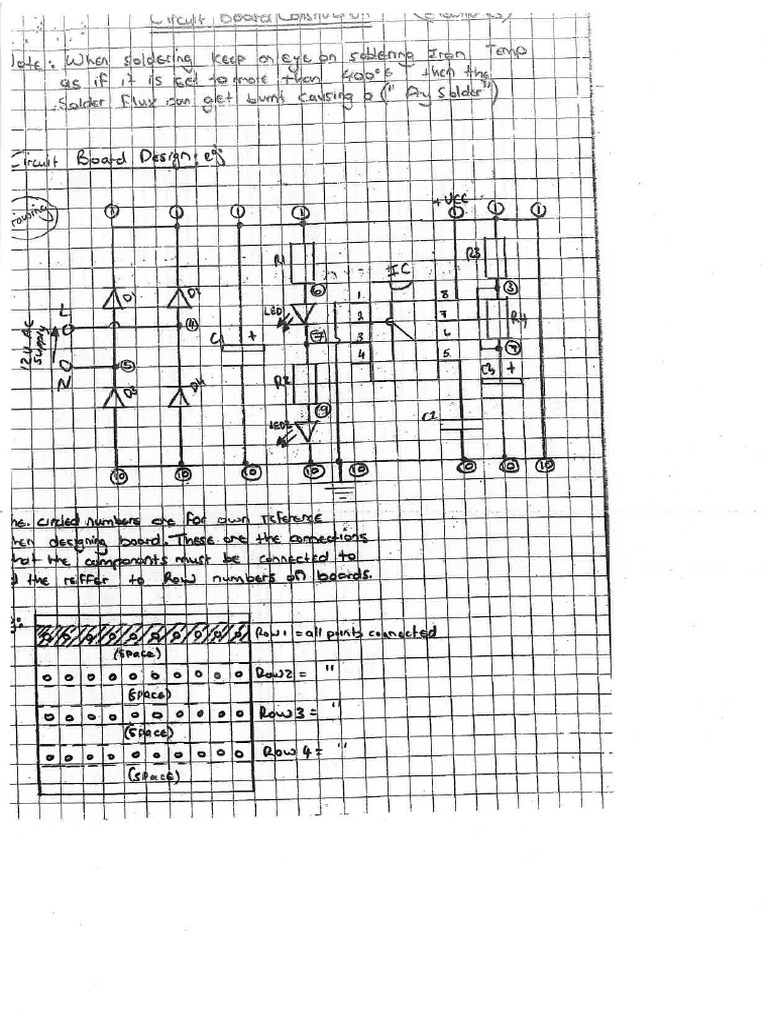 Circuit Board Construction (Electronics)
Note: When soldering keep an eye on soldering Iron Temp
as if it is set to more than 400°c then the
Solder Flux can get burnt causing a ("Dry Solder")
Circuit Board Design: eg:
Drawing
+VCC
1 1 1 1 1 1 1
R1
R3
IC
6
3
D1 D2
LED
1 8
2 7
3 6
4 5
R4
12V AC
Supply
L
N
4
5
C1 +
7
8
C3 +
D3 D4
R2
9
LED2
C2
10 10 10 10 10 10 10 10
The circled numbers are for own reference
when designing board. These are the connections
that the components must be connected to
the reffer to Row numbers on boards.
Row 1 = all points connected
(space)
Row 2 = "
(space)
Row 3 = "
(space)
Row 4 = "
(space)